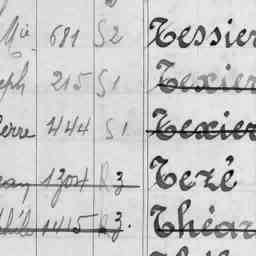 Mie 681 S2 Tessier
eph 215 S1 Texier
erre 444 S1 Texier
ean 1304 R3 Tezé
1415 R3. Théar